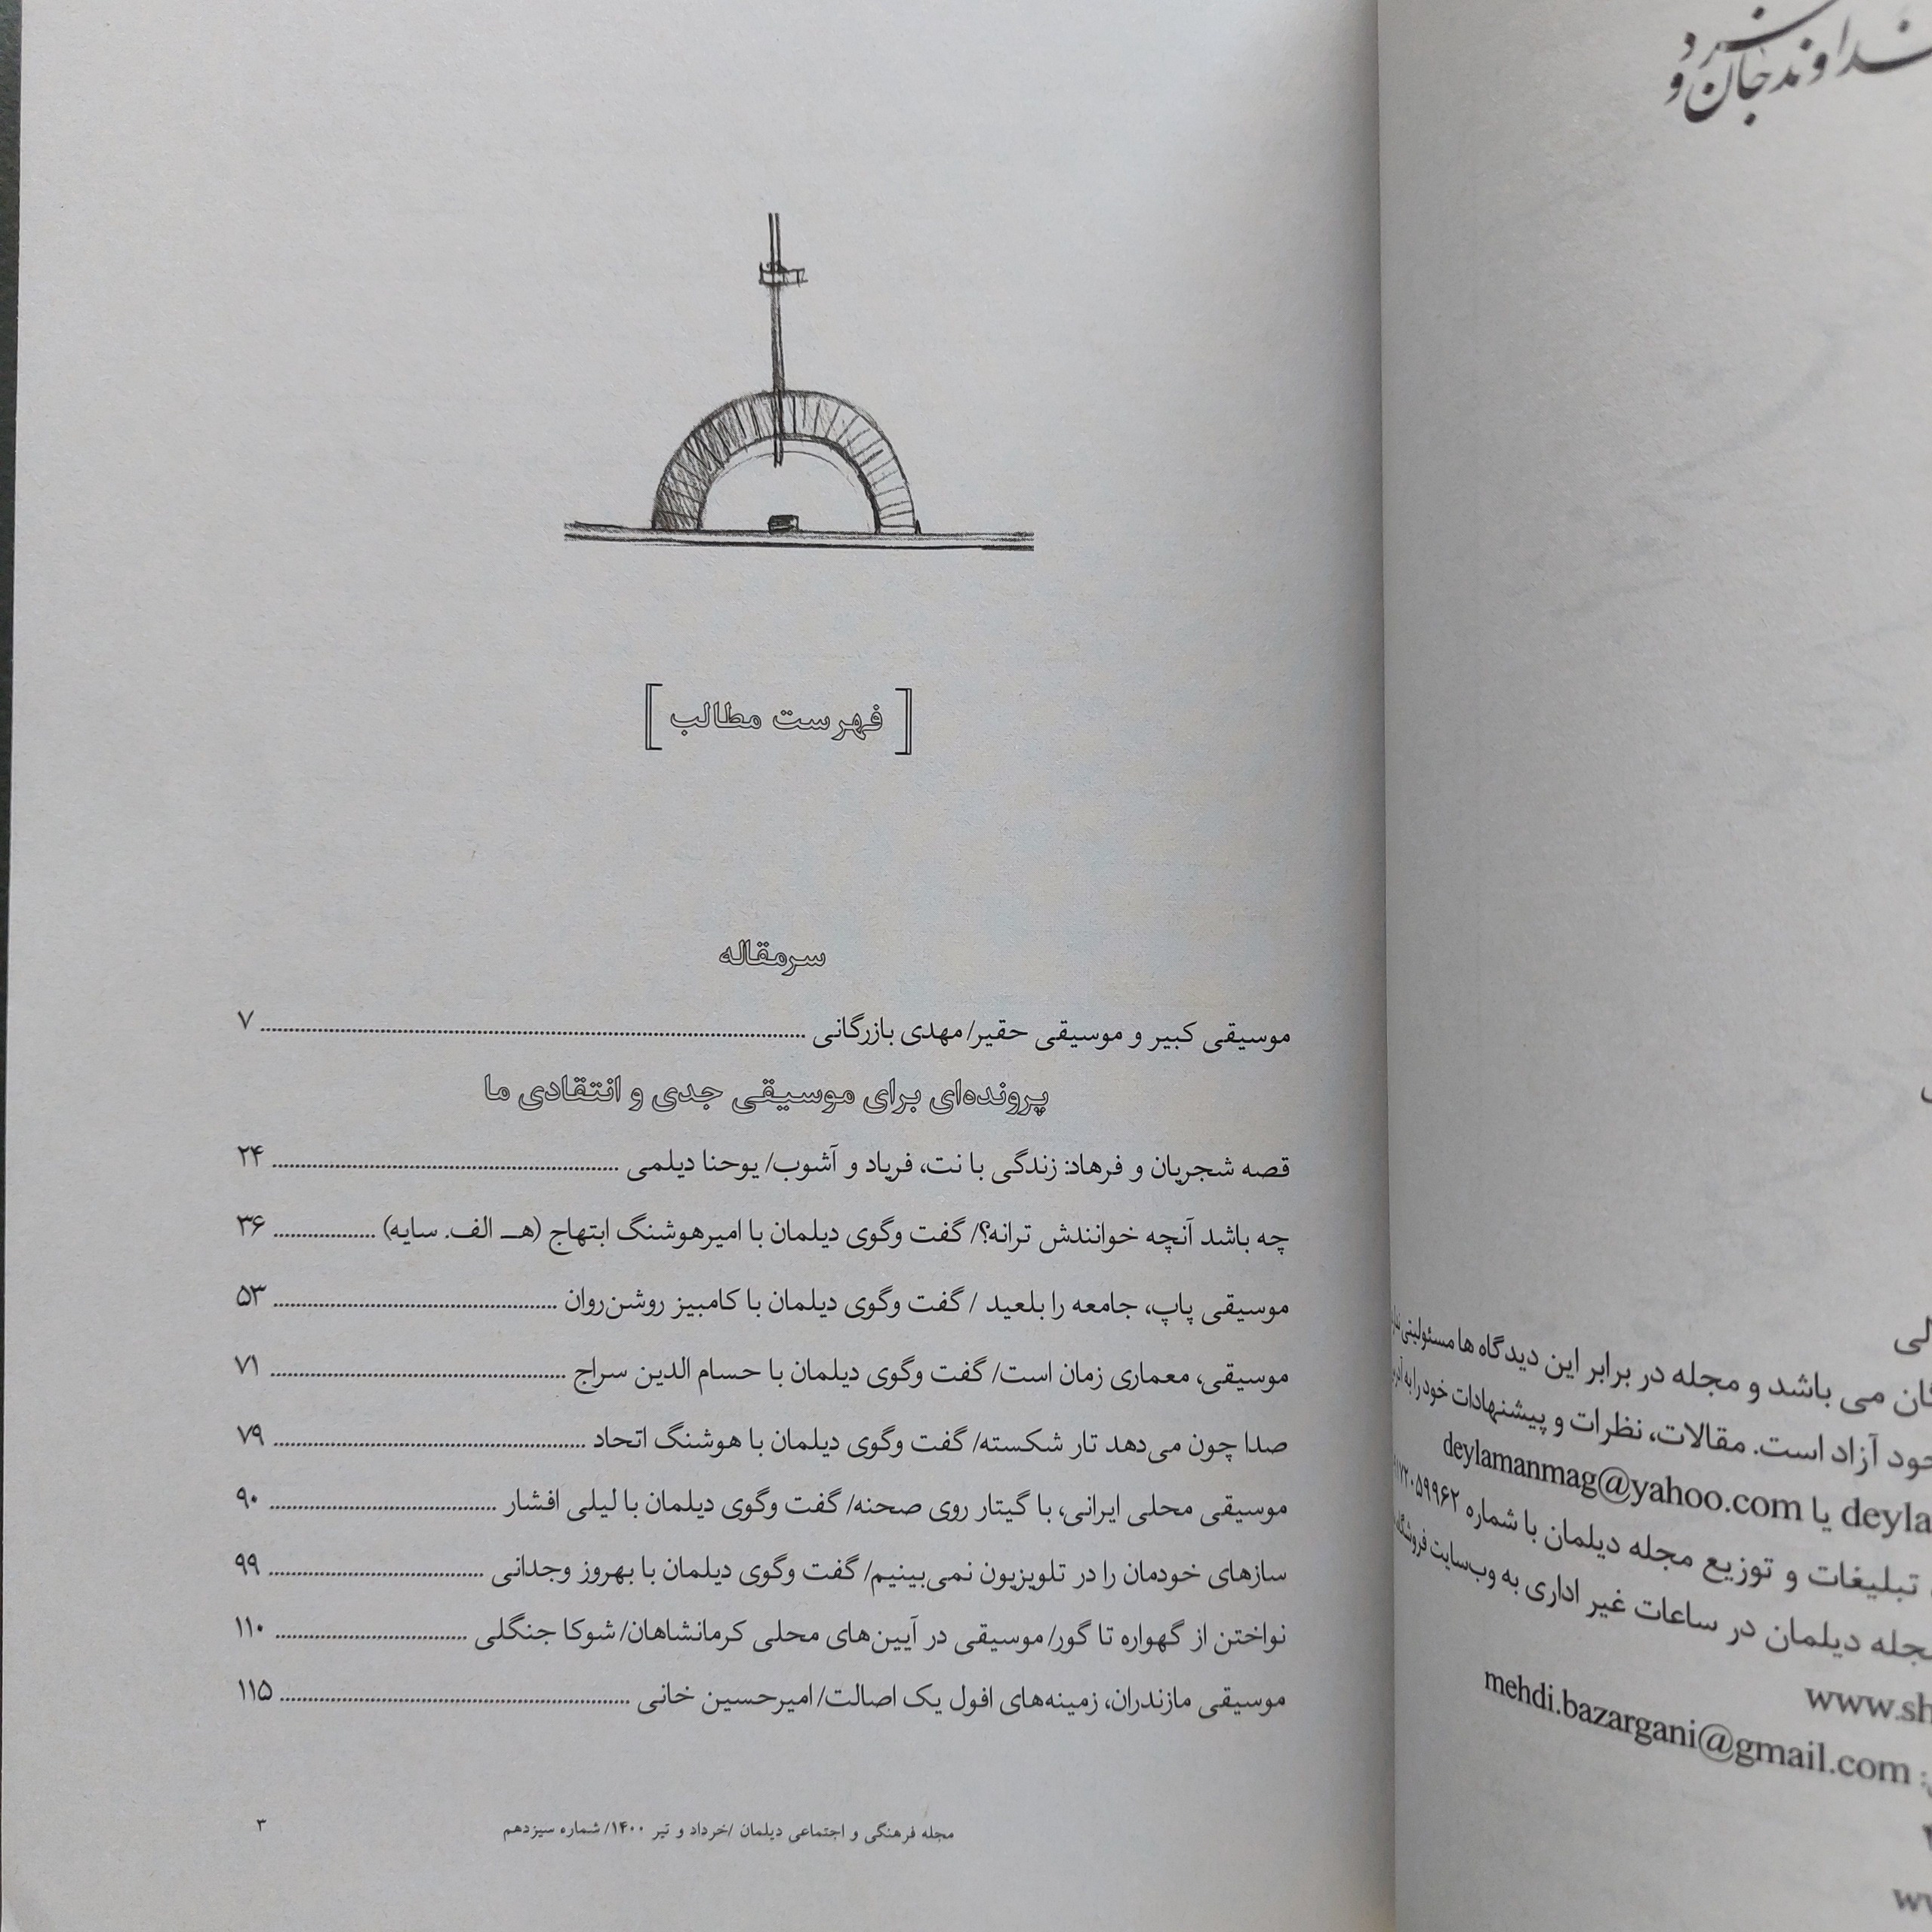 خداوند جان و خرد
[ فهرست مطالب ]
سرمقاله
موسیقی کبیر و موسیقی حقیر/ مهدی بازرگانی ........ ۷
پرونده‌ای برای موسیقی جدی و انتقادی ما
قصه شجریان و فرهاد: زندگی با نت، فریاد و آشوب/ یوحنا دیلمی ........ ۲۴
چه باشد آنچه خوانندش ترانه؟/ گفت وگوی دیلمان با امیرهوشنگ ابتهاج (هـ الف. سایه) ........ ۳۶
موسیقی پاپ، جامعه را بلعید / گفت وگوی دیلمان با کامبیز روشن‌روان ........ ۵۳
موسیقی، معماری زمان است/ گفت وگوی دیلمان با حسام الدین سراج ........ ۷۱
صدا چون می‌دهد تار شکسته/ گفت وگوی دیلمان با هوشنگ اتحاد ........ ۷۹
موسیقی محلی ایرانی، با گیتار روی صحنه/ گفت وگوی دیلمان با لیلی افشار ........ ۹۰
سازهای خودمان را در تلویزیون نمی‌بینیم/ گفت وگوی دیلمان با بهروز وجدانی ........ ۹۹
نواختن از گهواره تا گور/ موسیقی در آیین‌های محلی کرمانشاهان/ شوکا جنگلی ........ ۱۱۰
موسیقی مازندران، زمینه‌های افول یک اصالت/ امیرحسین خانی ........ ۱۱۵
مجله فرهنگی و اجتماعی دیلمان /خرداد و تیر ۱۴۰۰/ شماره سیزدهم
۳
می باشد و مجله در برابر این دیدگاه ها مسئولیتی
خود آزاد است. مقالات، نظرات و پیشنهادات خود را به
deyla یا deylamanmag@yahoo.com
تبلیغات و توزیع مجله دیلمان با شماره
مجله دیلمان در ساعات غیر اداری به وب‌سایت
www.sh
mehdi.bazargani@gmail.com